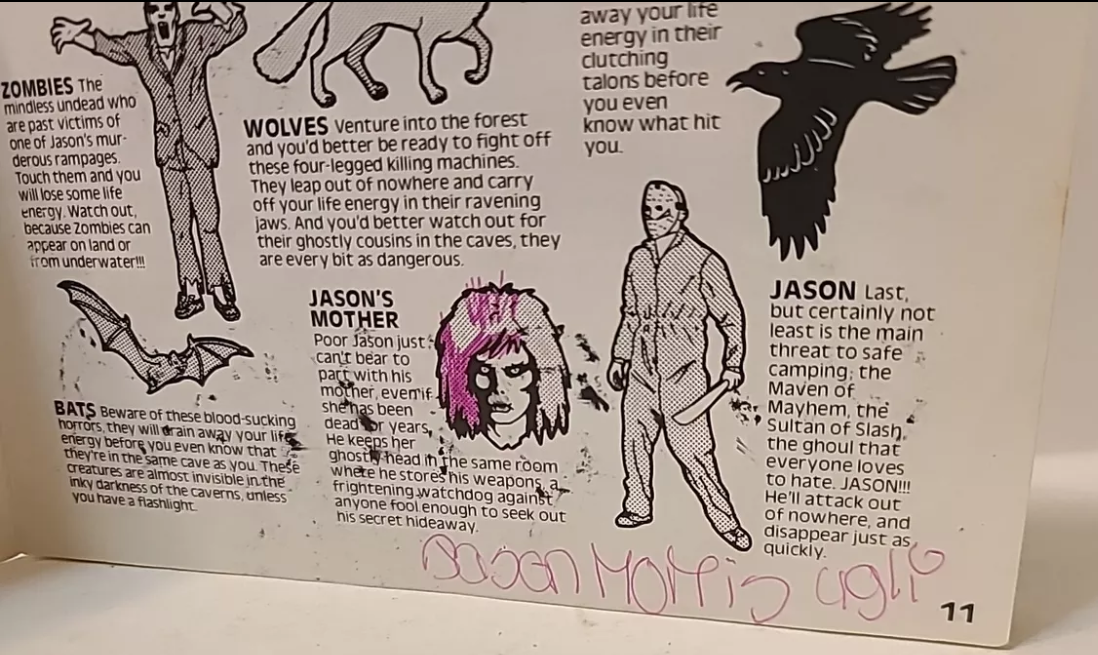 ZOMBIES The
mindless undead who
are past victims of
one of Jason's mur-
derous rampages.
Touch them and you
will lose some life
energy. Watch out,
because Zombies can
appear on land or
from underwater!!!
WOLVES Venture into the forest
and you'd better be ready to fight off
these four-legged killing machines.
They leap out of nowhere and carry
off your life energy in their ravening
jaws. And you'd better watch out for
their ghostly cousins in the caves, they
are every bit as dangerous.
away your life
energy in their
clutching
talons before
you even
know what hit
you.
BATS Beware of these blood-sucking
horrors, they will drain away your life
energy before you even know that
they're in the same cave as you. These
creatures are almost invisible in the
inky darkness of the caverns, unless
you have a flashlight.
JASON'S
MOTHER
Poor Jason just
can't bear to
part with his
mother, even if
she has been
dead for years.
He keeps her
ghostly head in the same room
where he stores his weapons, a
frightening watchdog against
anyone fool enough to seek out
his secret hideaway.
JASON Last,
but certainly not
least is the main
threat to safe
camping; the
Maven of
Mayhem, the
Sultan of Slash,
the ghoul that
everyone loves
to hate. JASON!!!
He'll attack out
of nowhere, and
disappear just as
quickly.
Morris ugli
11